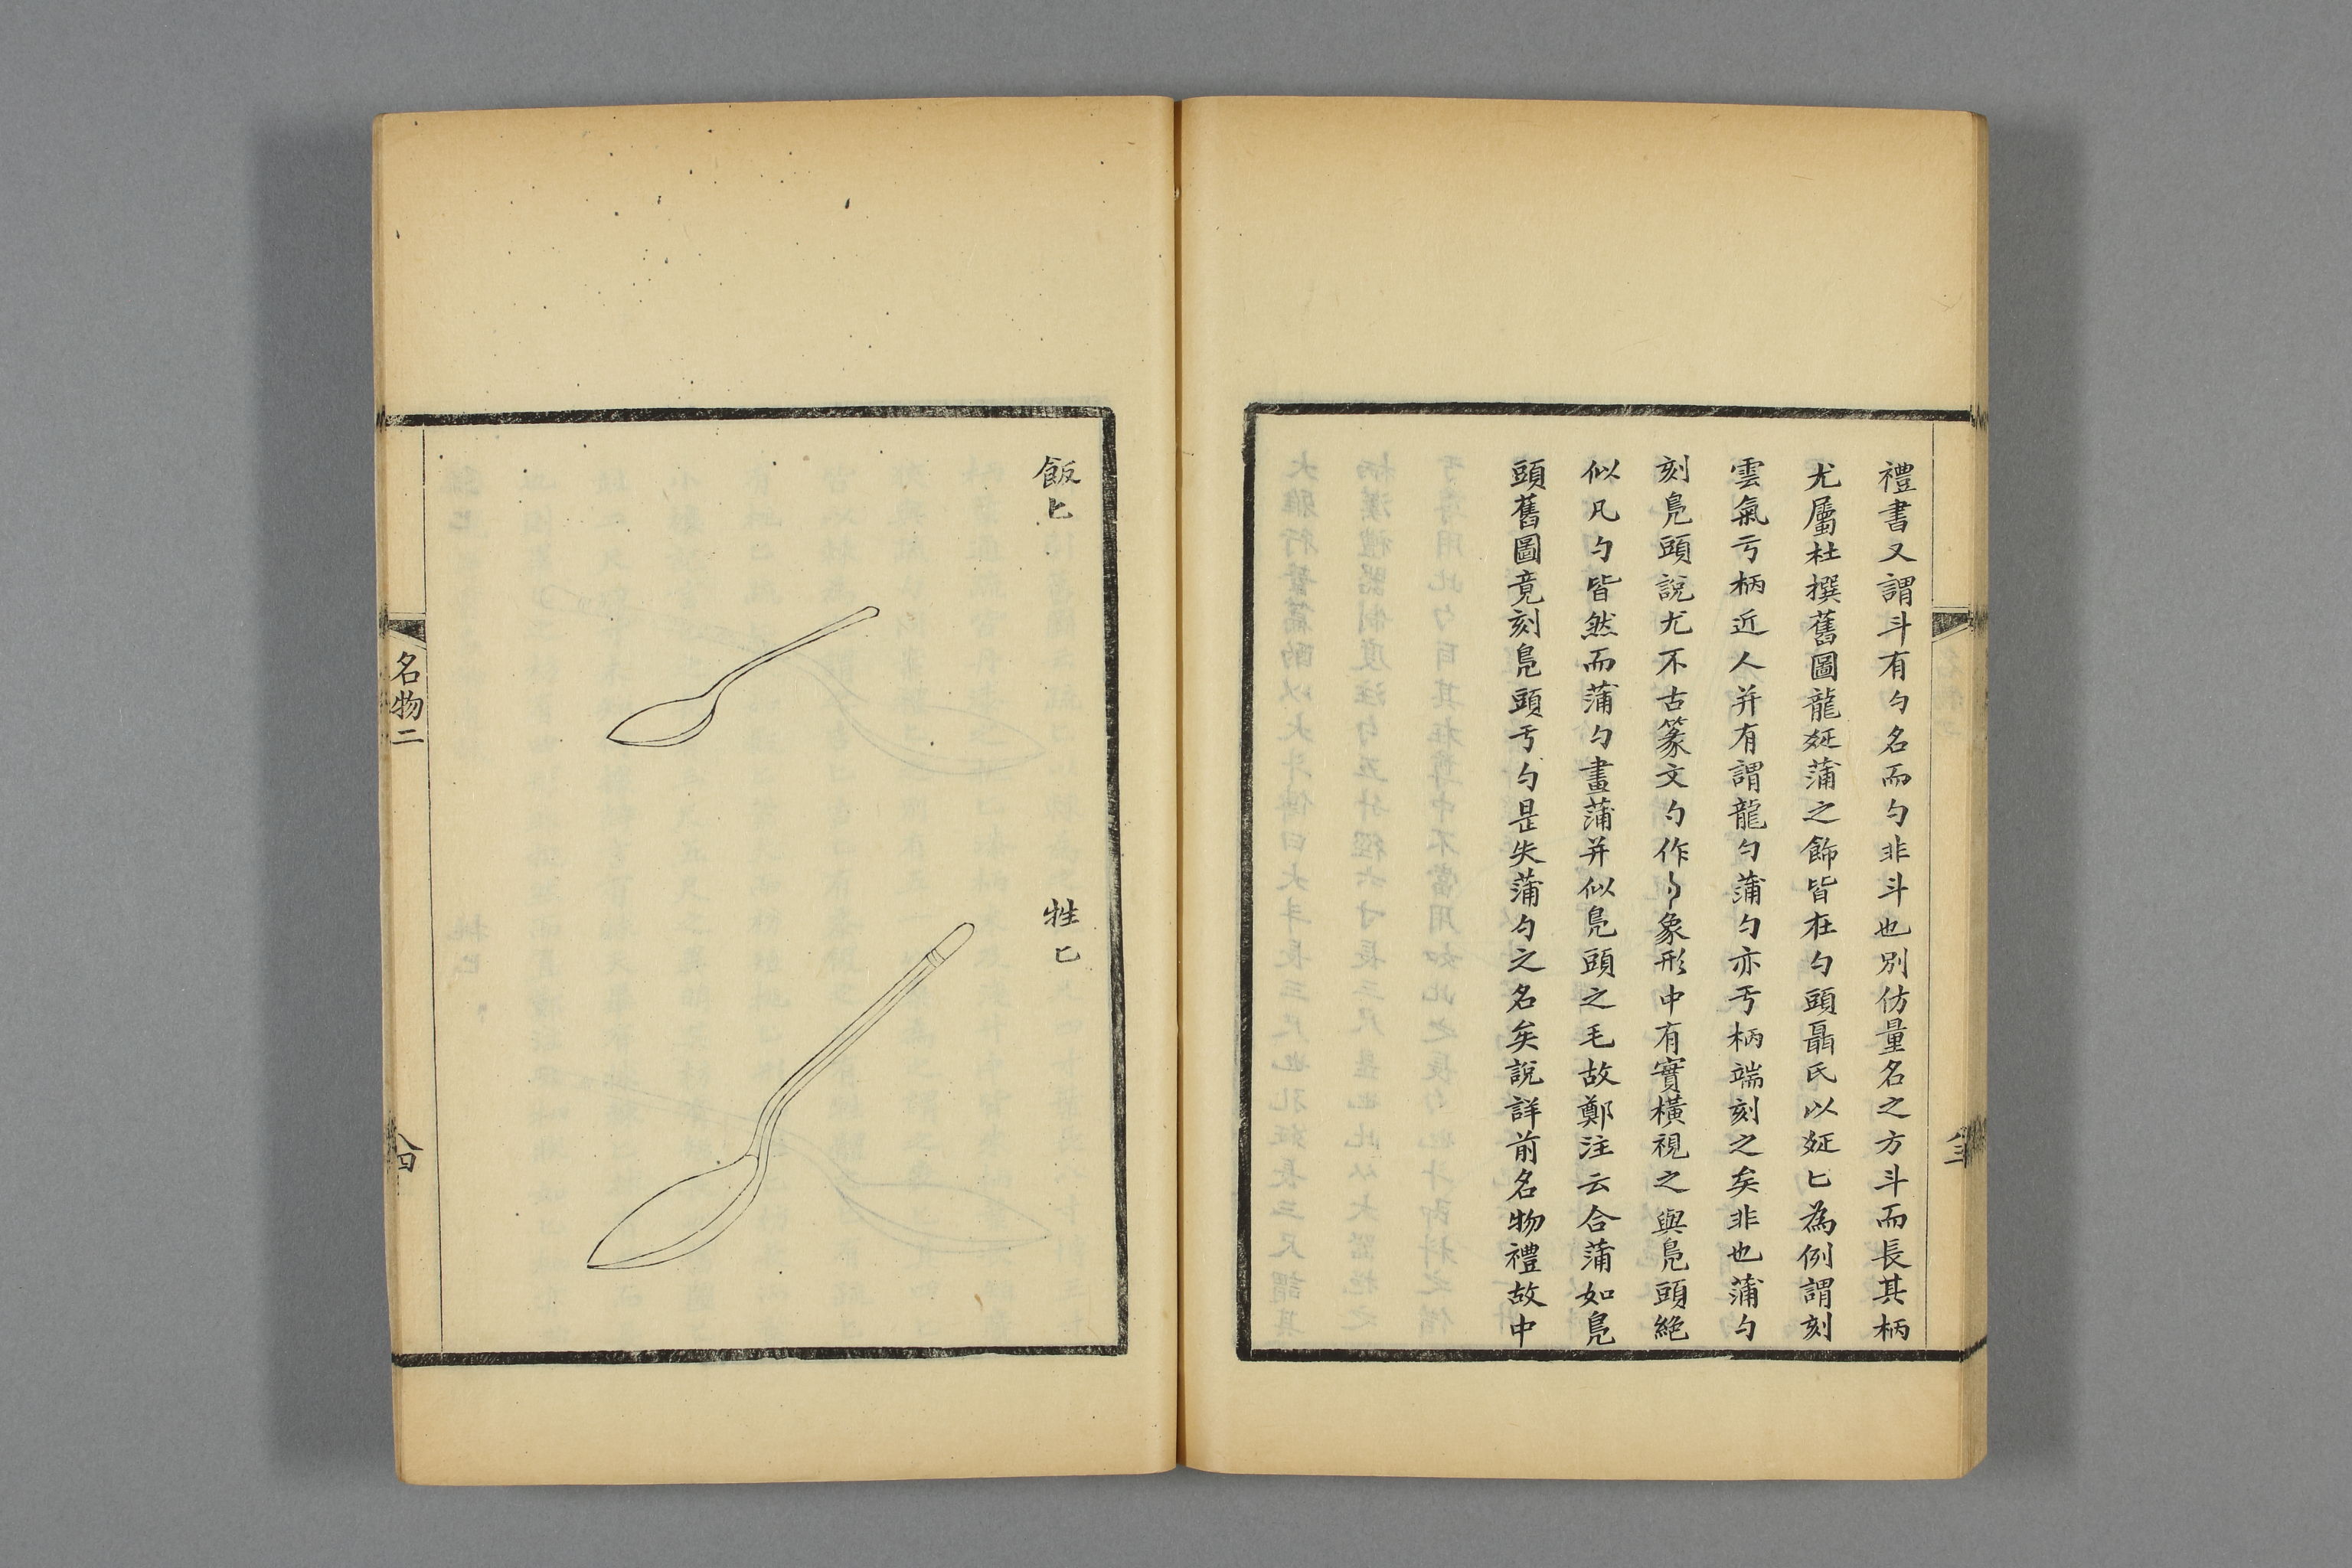 禮書又謂斗有勺名而勺非斗也別仿量名之方斗而長其柄
尤屬杜撰舊圖龍疏蒲之飾皆在勺頭聶氏以疏匕為例謂刻
雲氣亏柄近人并有謂龍勺蒲勺亦亏柄端刻之矣非也蒲勺
刻鳧頭說尤不古篆文勺作象形中有實橫視之與鳧頭絕
似凡勺皆然而蒲勺畫蒲并似鳧頭之毛故鄭注云合蒲如鳧
頭舊圖竟刻鳧頭亏勺是失蒲勺之名矣說詳前名物禮故中
飯匕
牲匕
名物二
八四